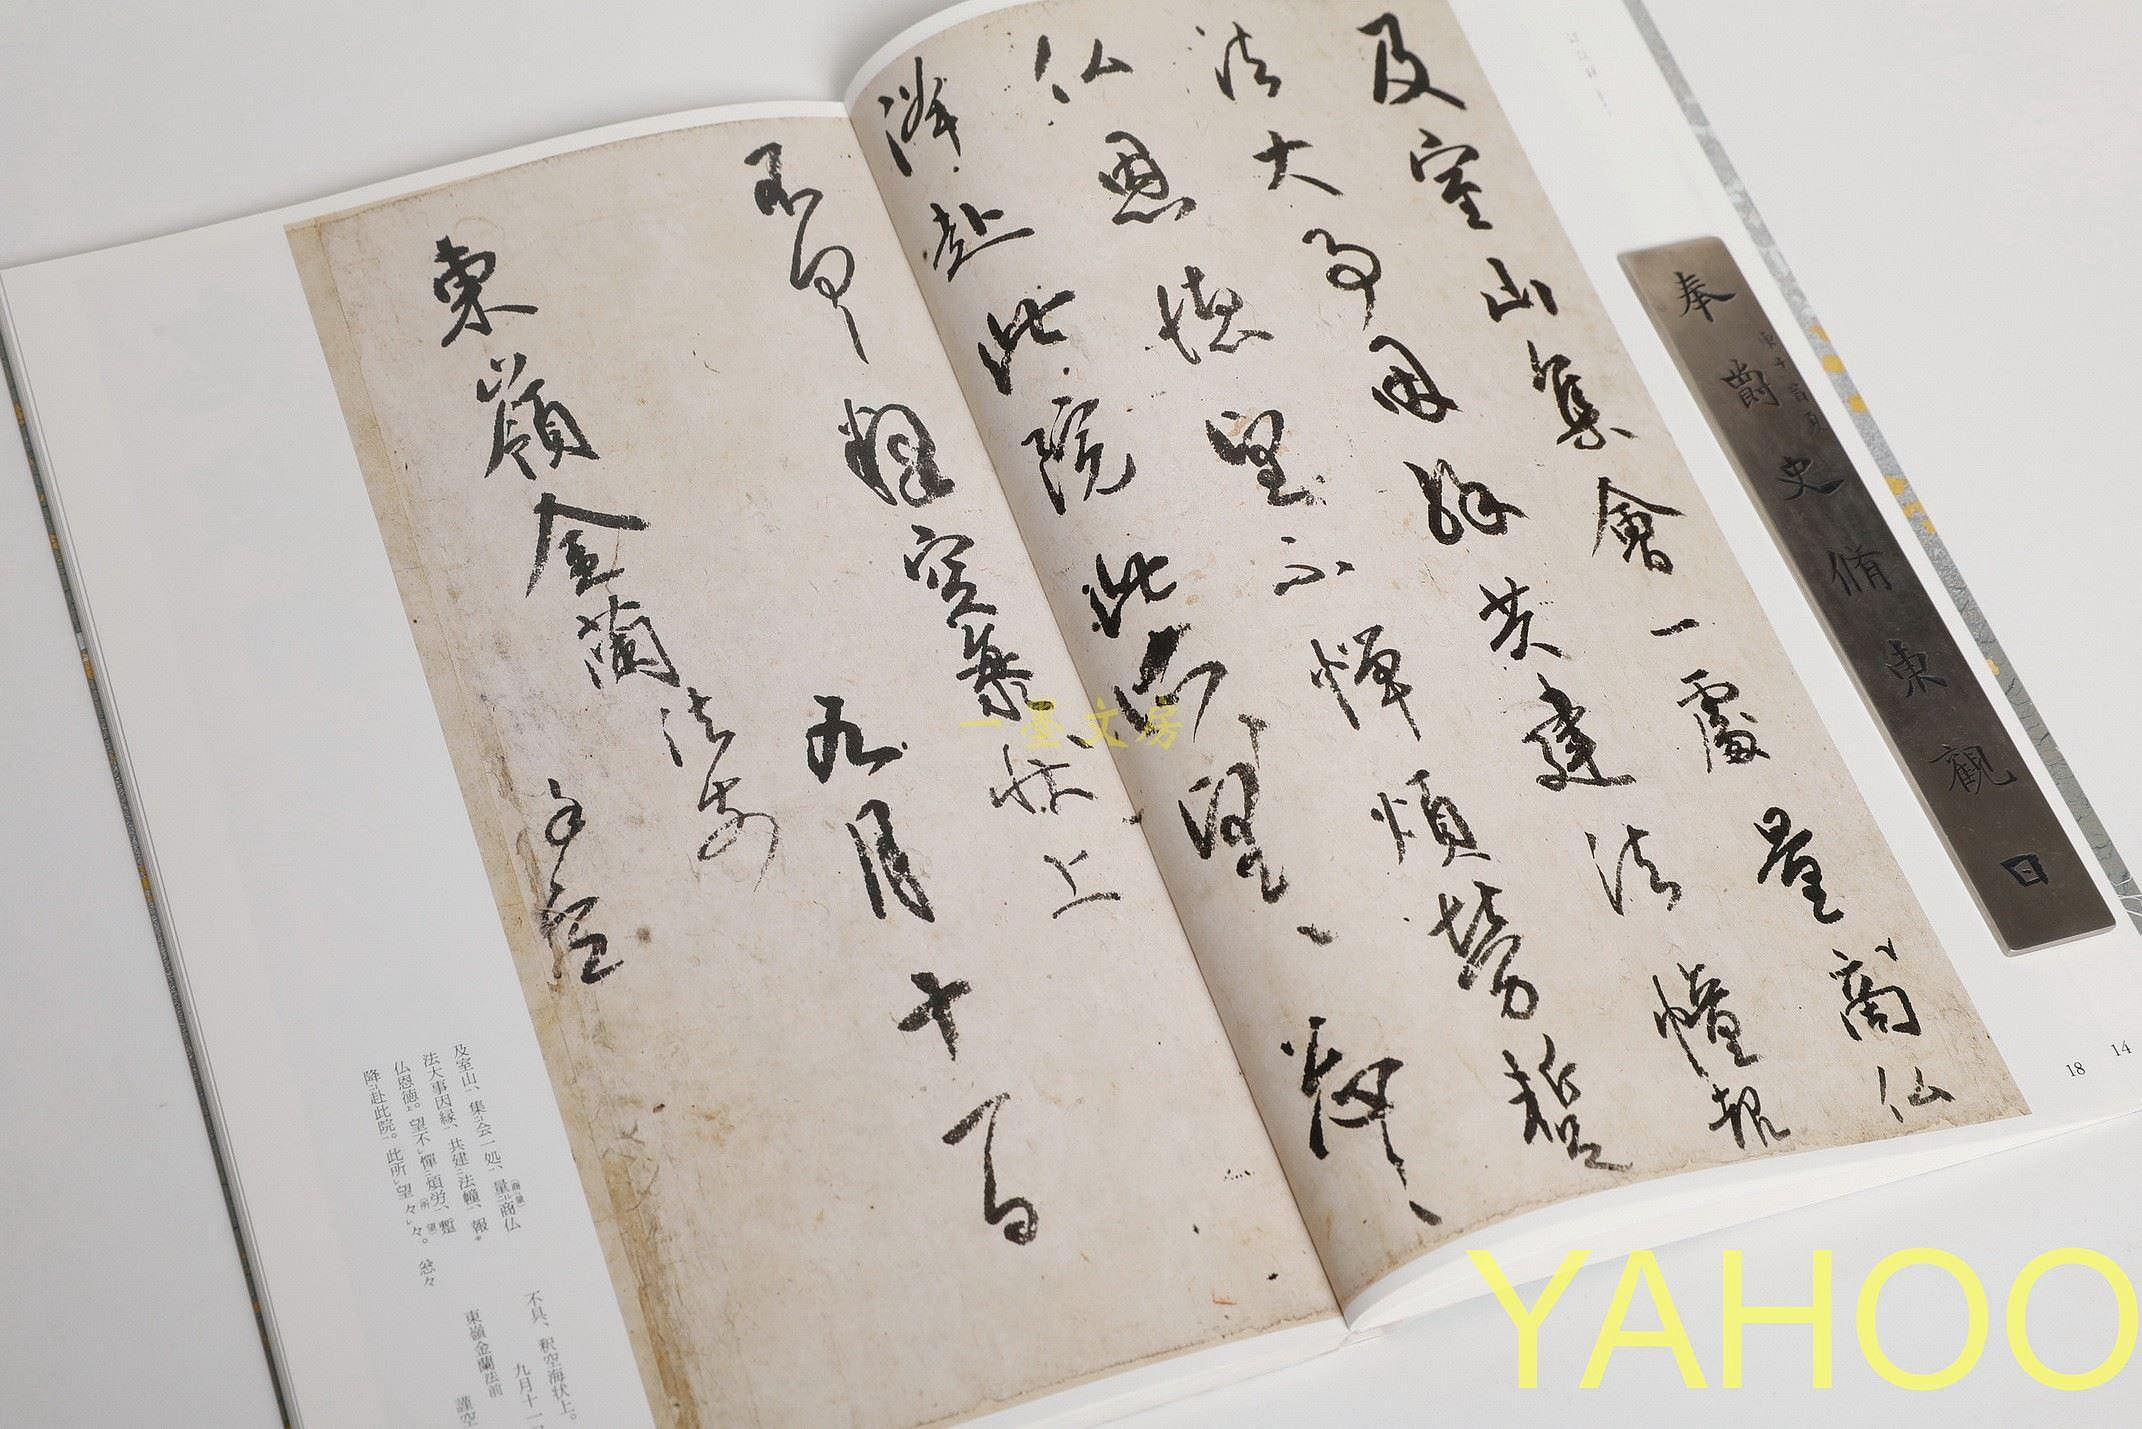 及室山集會一處量商仏
法大事因縁共建法幢報
仏恩徳望不憚煩勞蹔
降赴此院此所望々々忩々
不具釋空海状上
九月十一日
東嶺金蘭法前
謹空
奉爵史脩東觀日
及室山、集会一処、量商仏
法大事因縁、共建法幢、報
仏恩徳。望不憚煩労、蹔
降赴此院。此所望々々。忩々
不具、釈空海状上。
九月十一
東嶺金蘭法前
謹空
18
14
一墨文房
YAHOO